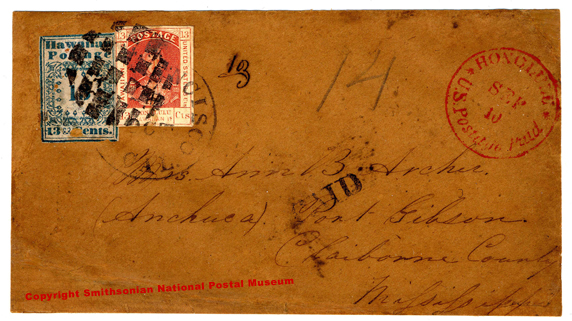 Hawaiian
Postage
13 Cents.
13 POSTAGE 13
UNITED STATES
Cts
CISCO
13
14
HONOLULU
SEP
10
U.S. Postage Paid
Mrs Ann B. Archer.
(Anchuca). Port Gibson.
Claiborne County
Mississippi
Copyright Smithsonian National Postal Museum